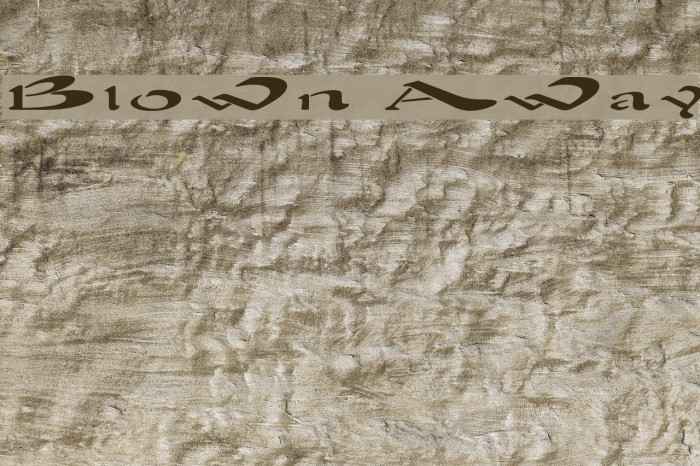 Blown Away